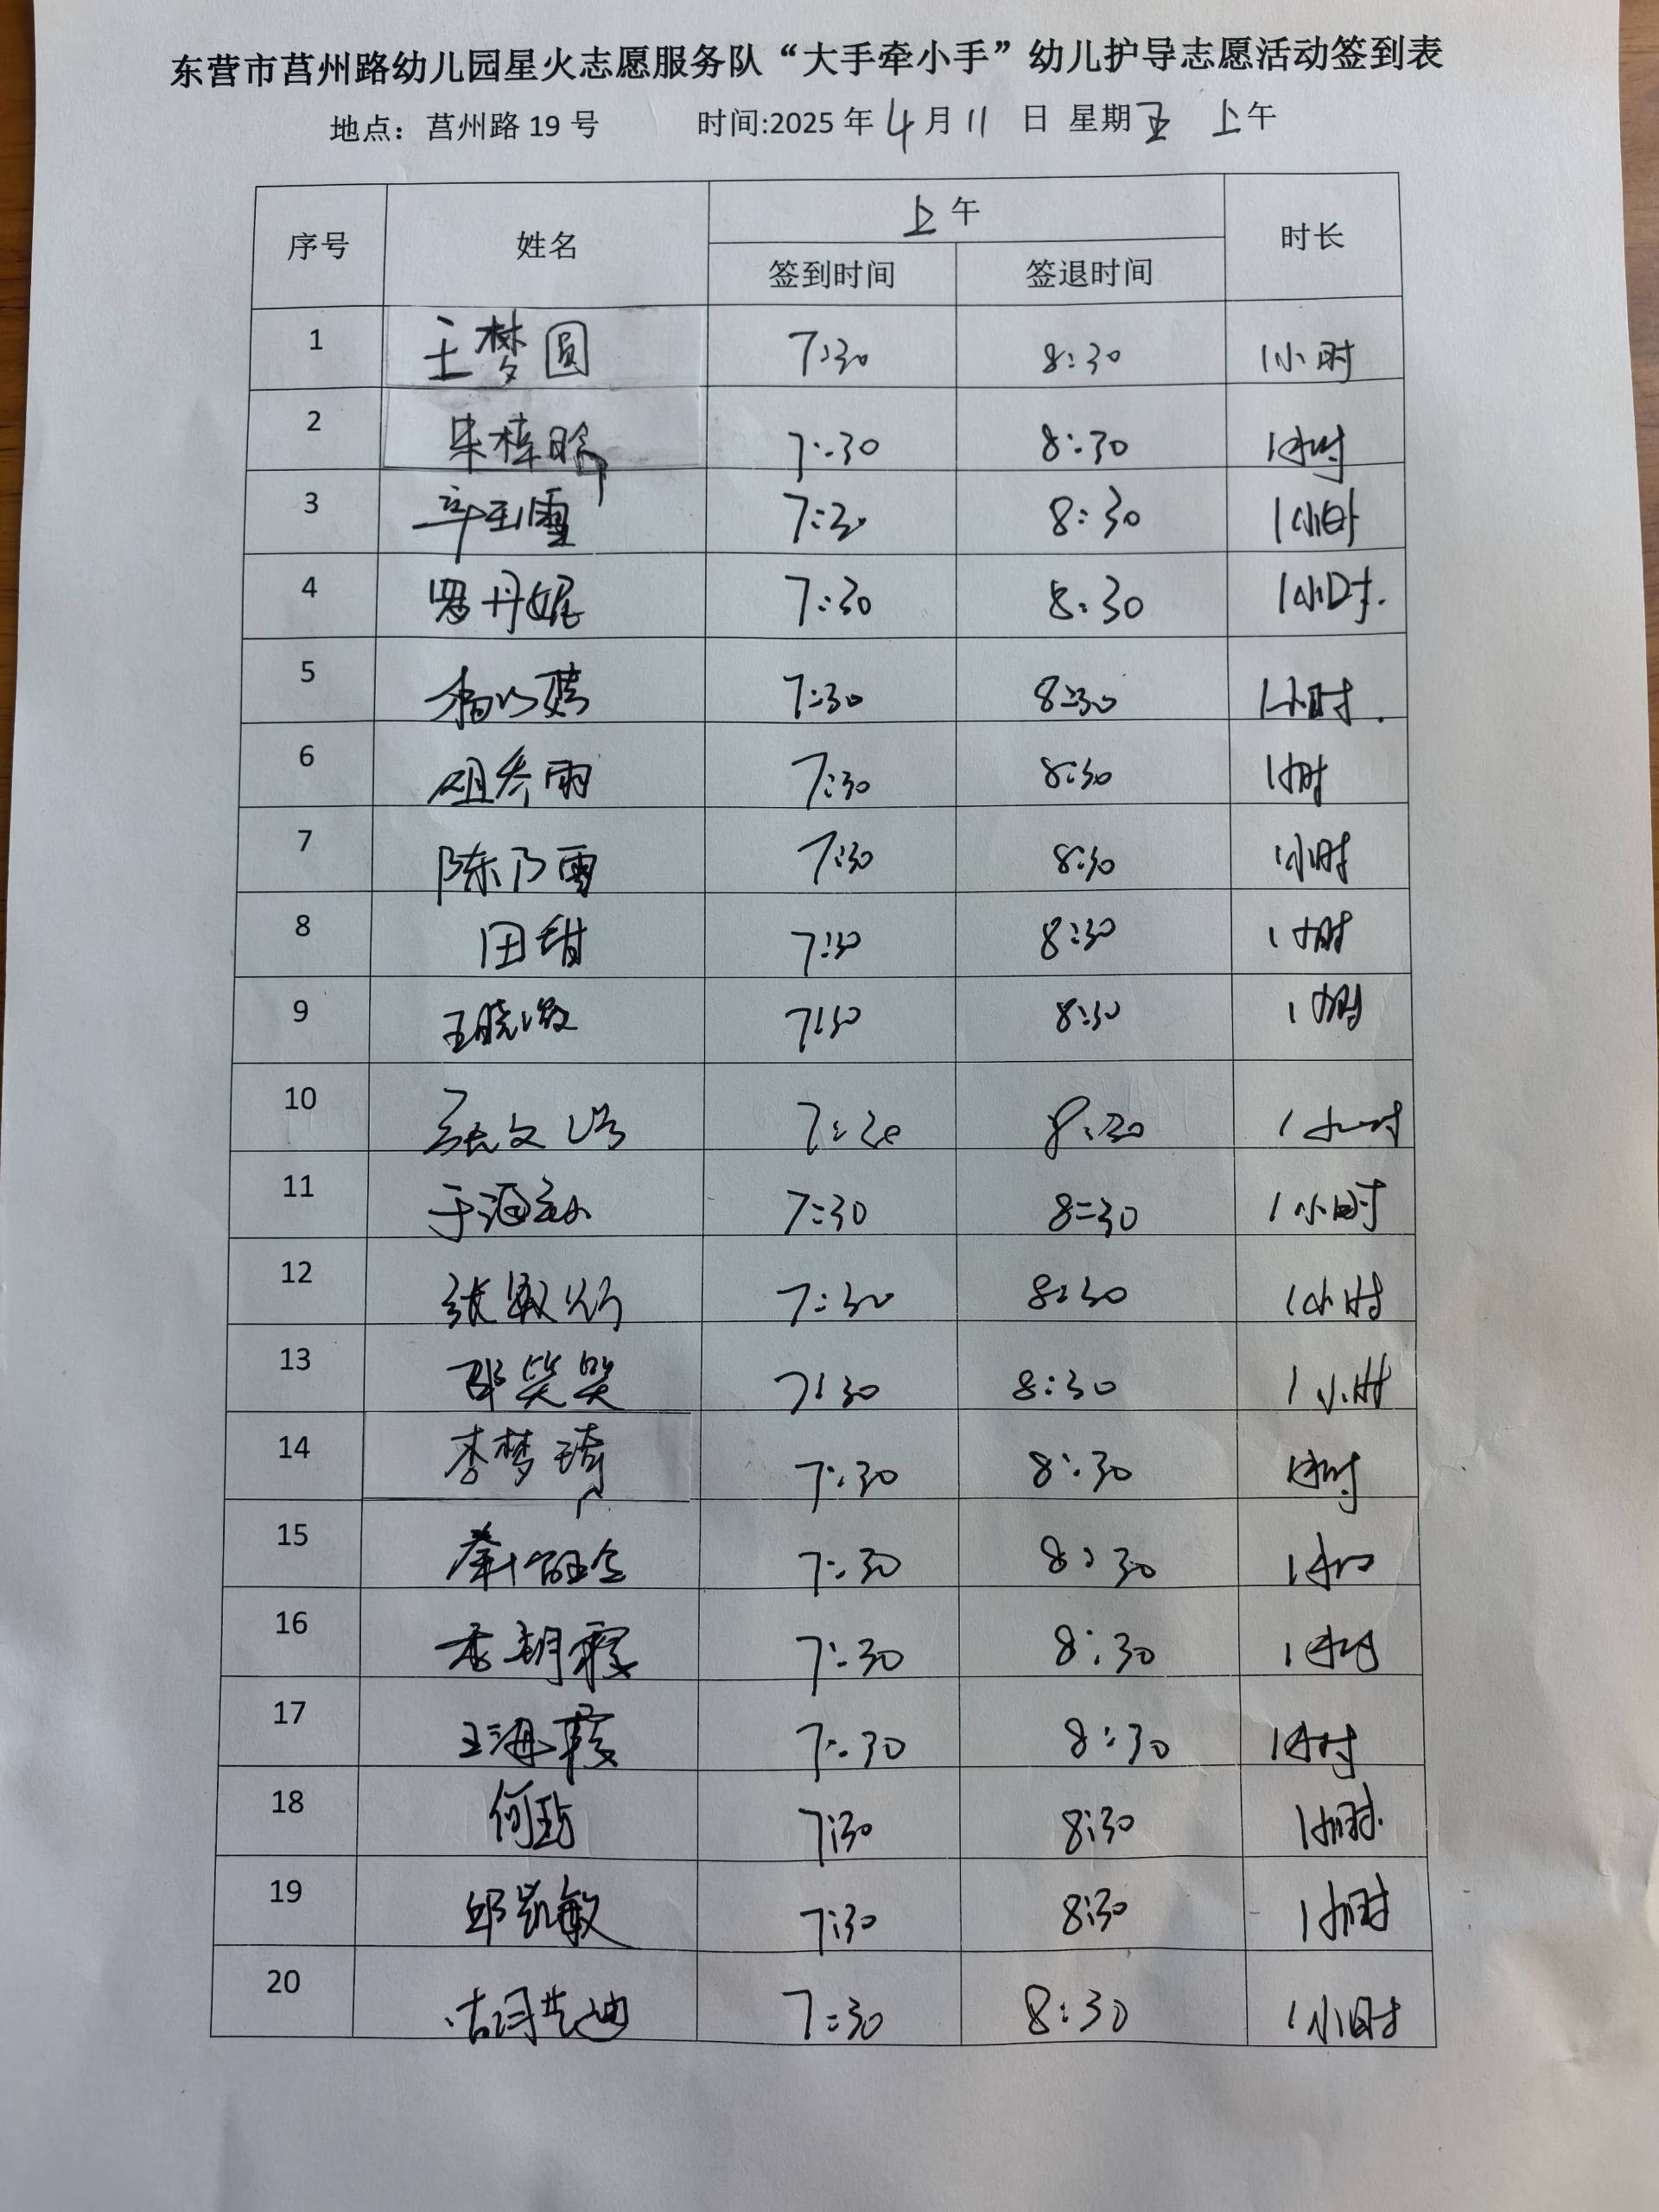 东营市莒州路幼儿园星火志愿服务队“大手牵小手”幼儿护导志愿活动签到表
地点：莒州路19号 时间:2025年4月11日 星期五 上午
序号 姓名 上午 时长
签到时间 签退时间
1 王梦圆 7:30 8:30 1小时
2 朱梓晗 7:30 8:30 1小时
3 辛玉雪 7:30 8:30 1小时
4 罗丹妮 7:30 8:30 1小时.
5 7:30 8:30 1小时.
6 7:30 8:30 1小时
7 陈乃雪 7:30 8:30 1小时
8 田甜 7:30 8:30 1小时
9 王晓微 7:30 8:30 1小时
10 8:30 1小时
11 7:30 8:30 1小时
12 7:30 8:30 1小时
13 邵笑笑 7:30 8:30 1小时
14 李梦琦 7:30 8:30 1小时
15 7:30 8:30
16 李朝霞 7:30 8:30 1小时
17 王海霞 7:30 8:30 1小时
18 7:30 8:30 1小时.
19 邱凯敏 7:30 8:30 1小时
20 7:30 8:30 1小时